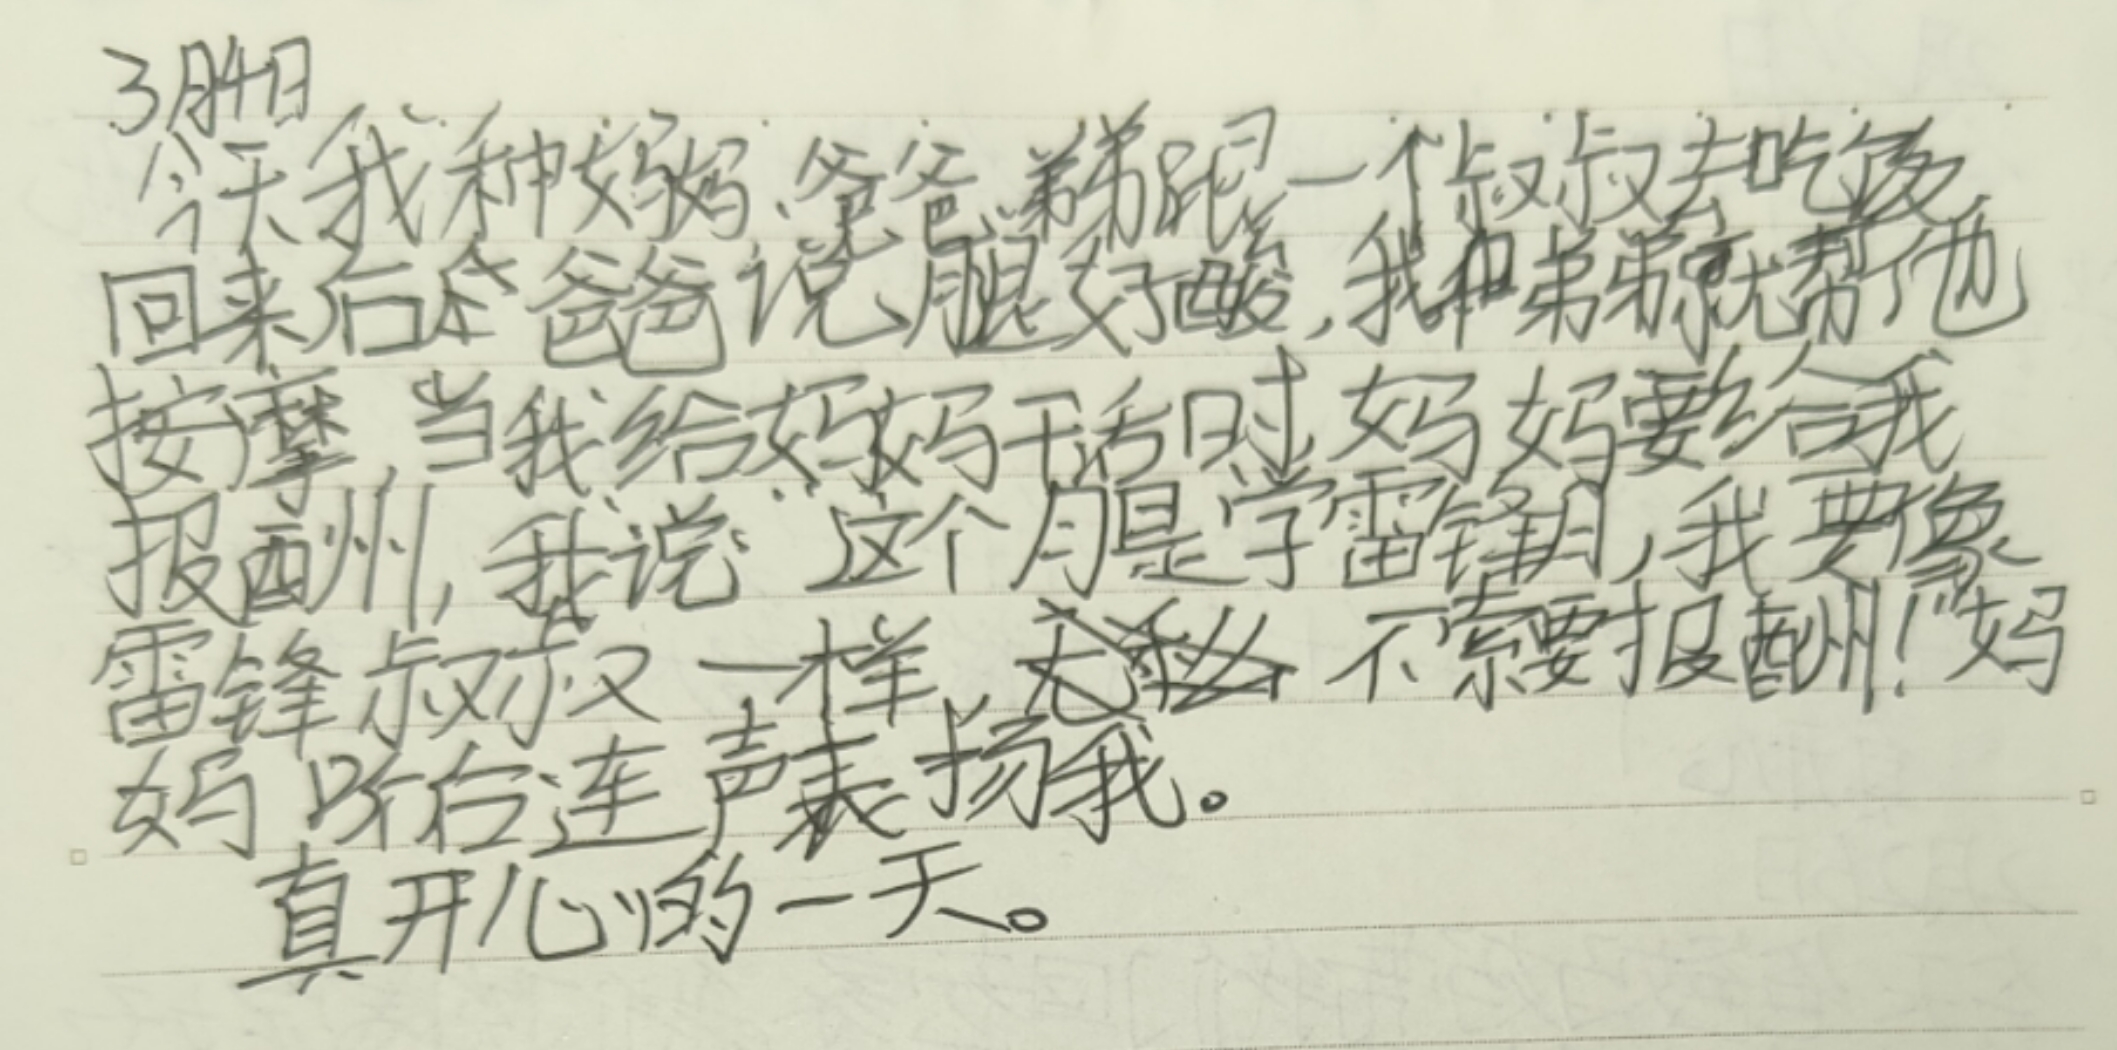 3月4日
今天我种妈妈、爸爸、弟弟跟一个叔叔去吃饭,
回来后 爸爸说腿好酸,我和弟弟就帮他
按摩,当我给妈妈干活时,妈妈要给我
报酬,我说:“这个月是学雷锋月,我要像
雷锋叔叔一样,不索要报酬!”妈
妈听后连声表扬我。
真开心的一天。